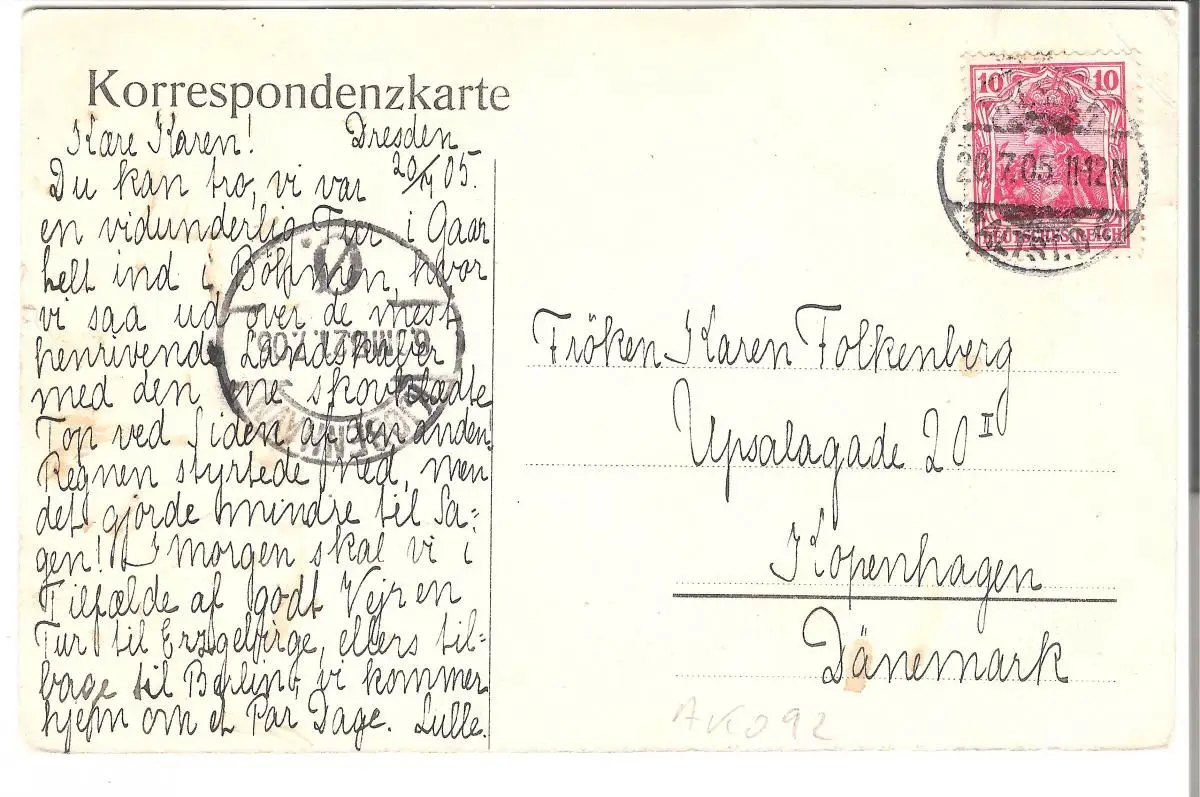 Korrespondenzkarte
Kære Karen! Dresden
20/7 05.
Du kan tro, vi var
en vidunderlig Tur i Gaar
helt ind i Böhmen, hvor
vi saa ud over de mest
henrivende Landskaber
med den ene skovklædte
Top ved Siden af den anden.
Regnen styrtede ned, men
det gjorde mindre til Sa=
gen! I Morgen skal vi i
Tilfælde af godt Vejr en
Tur til Erzgebirge, ellers til=
bage til Berlin, vi kommer
hjem om et Par Dage. Lulle.
10 10
DEUTSCHES REICH
20.7.05. 11-12N
Fröken Karen Folkenberg
Upsalagade 20 II
Kopenhagen
Dänemark
Ø.
KJØBENHAVN
AK092